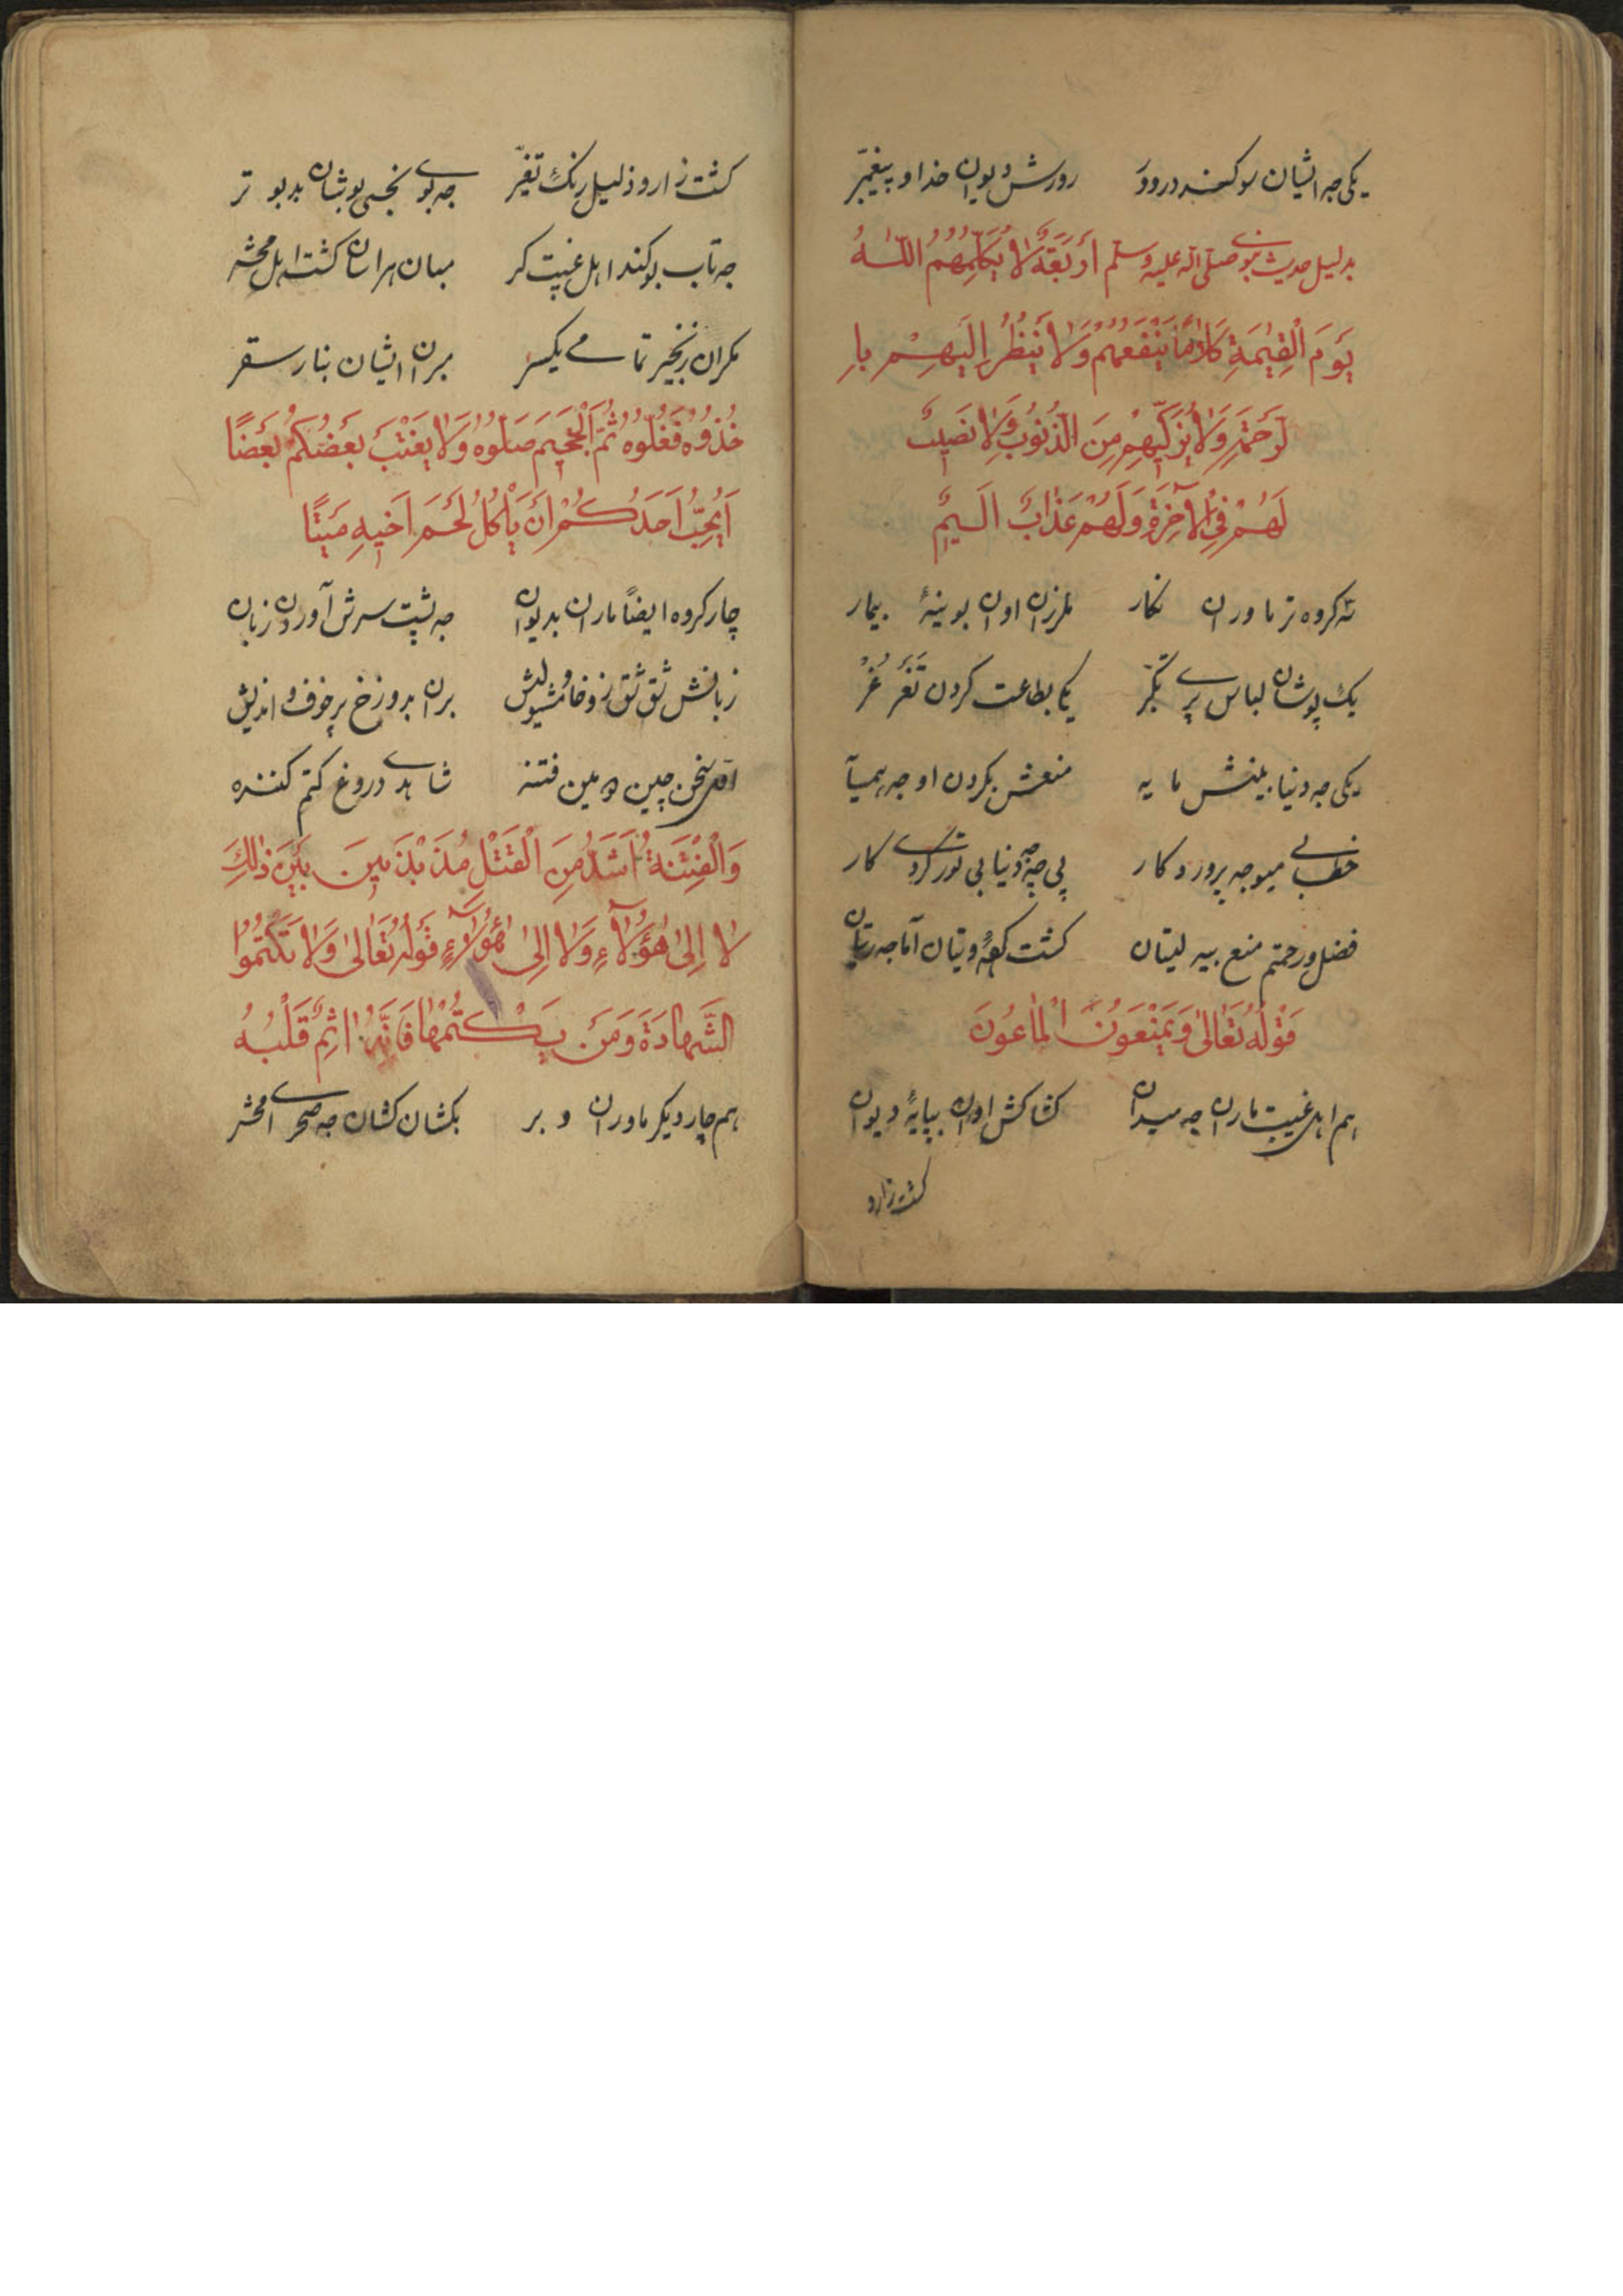 یکی جه ایشان سوکند درو ورورش دیوان خدا و پیغمبر
بدلیل حدیث نبوی صلی الله علیه وسلم اَرْبَعَةٌ لا یُکَلِّمُهُمُ اللّٰهُ
یَوْمَ الْقِیٰمَةِ کَلَامًا یَنْفَعُهُمْ وَلَا یَنْظُرُ اِلَیْهِمْ بِا
لرَّحْمَةِ وَلَا یُزَکِّیهِمْ مِنَ الذُّنُوبِ وَلَا نَصِیبٌ
لَهُمْ فِی الْاٰخِرَةِ وَلَهُمْ عَذَابٌ اَلِیمٌ
کروه تر ماوران نکار بلرزان اوان بوینهٔ بیمار
یک پوشان لباس پری تکبّر یکا بطاعت کردن
یکی جه دنیا مایه منعش بکردن او جه
خطابی میو جه پروردکار پی چه جه دنیا بی تور کردی کار
فضل ورحمتم منع بیه لیتان کشت آما جه
قَوْلُهُ تَعَالٰی وَیَمْنَعُونَ الْمَاعُونَ
هم اهل غیبت ماران جه میدان کشاکش اوان بپایهٔ دیوان
کشت زارو
کشت زارو ذلیل رنک تغیّر جه بوی نجس بوشان بدبوتر
جه تاب بو کند اهل غیبت کر مبان هراسان کشت اهل محشر
مکران زنجیر تمامی یکسر بران ایشان بنار سقر
خُذُوهُ فَغُلُّوهُ ثُمَّ الْجَحِیمَ صَلُّوهُ وَلَا یَغْتَبْ بَعْضُکُمْ بَعْضًا
اَیُحِبُّ اَحَدُکُمْ اَنْ یَأْکُلَ لَحْمَ اَخِیهِ مَیْتًا
چار کروه ایضاً ماران بدیوان جه پشت سرش آوردن زبان
زبانش شق شق بران بدوزخ پر خوف و اندیش
سخن چین فتنه شاهدی دروغ کتم کننده
وَالْفِتْنَةُ اَشَدُّ مِنَ الْقَتْلِ مُذَبْذَبِینَ بَیْنَ ذٰلِکَ
لَا اِلٰی هٰؤُلَاءِ وَلَا اِلٰی هٰؤُلَاءِ قَوْلُهُ تَعَالٰی وَلَا تَکْتُمُوا
الشَّهَادَةَ وَمَنْ یَکْتُمْهَا فَاِنَّهُ اٰثِمٌ قَلْبُهُ
هم چار دیکر ماوران و بر بکشان کشان جه صحرای محشر